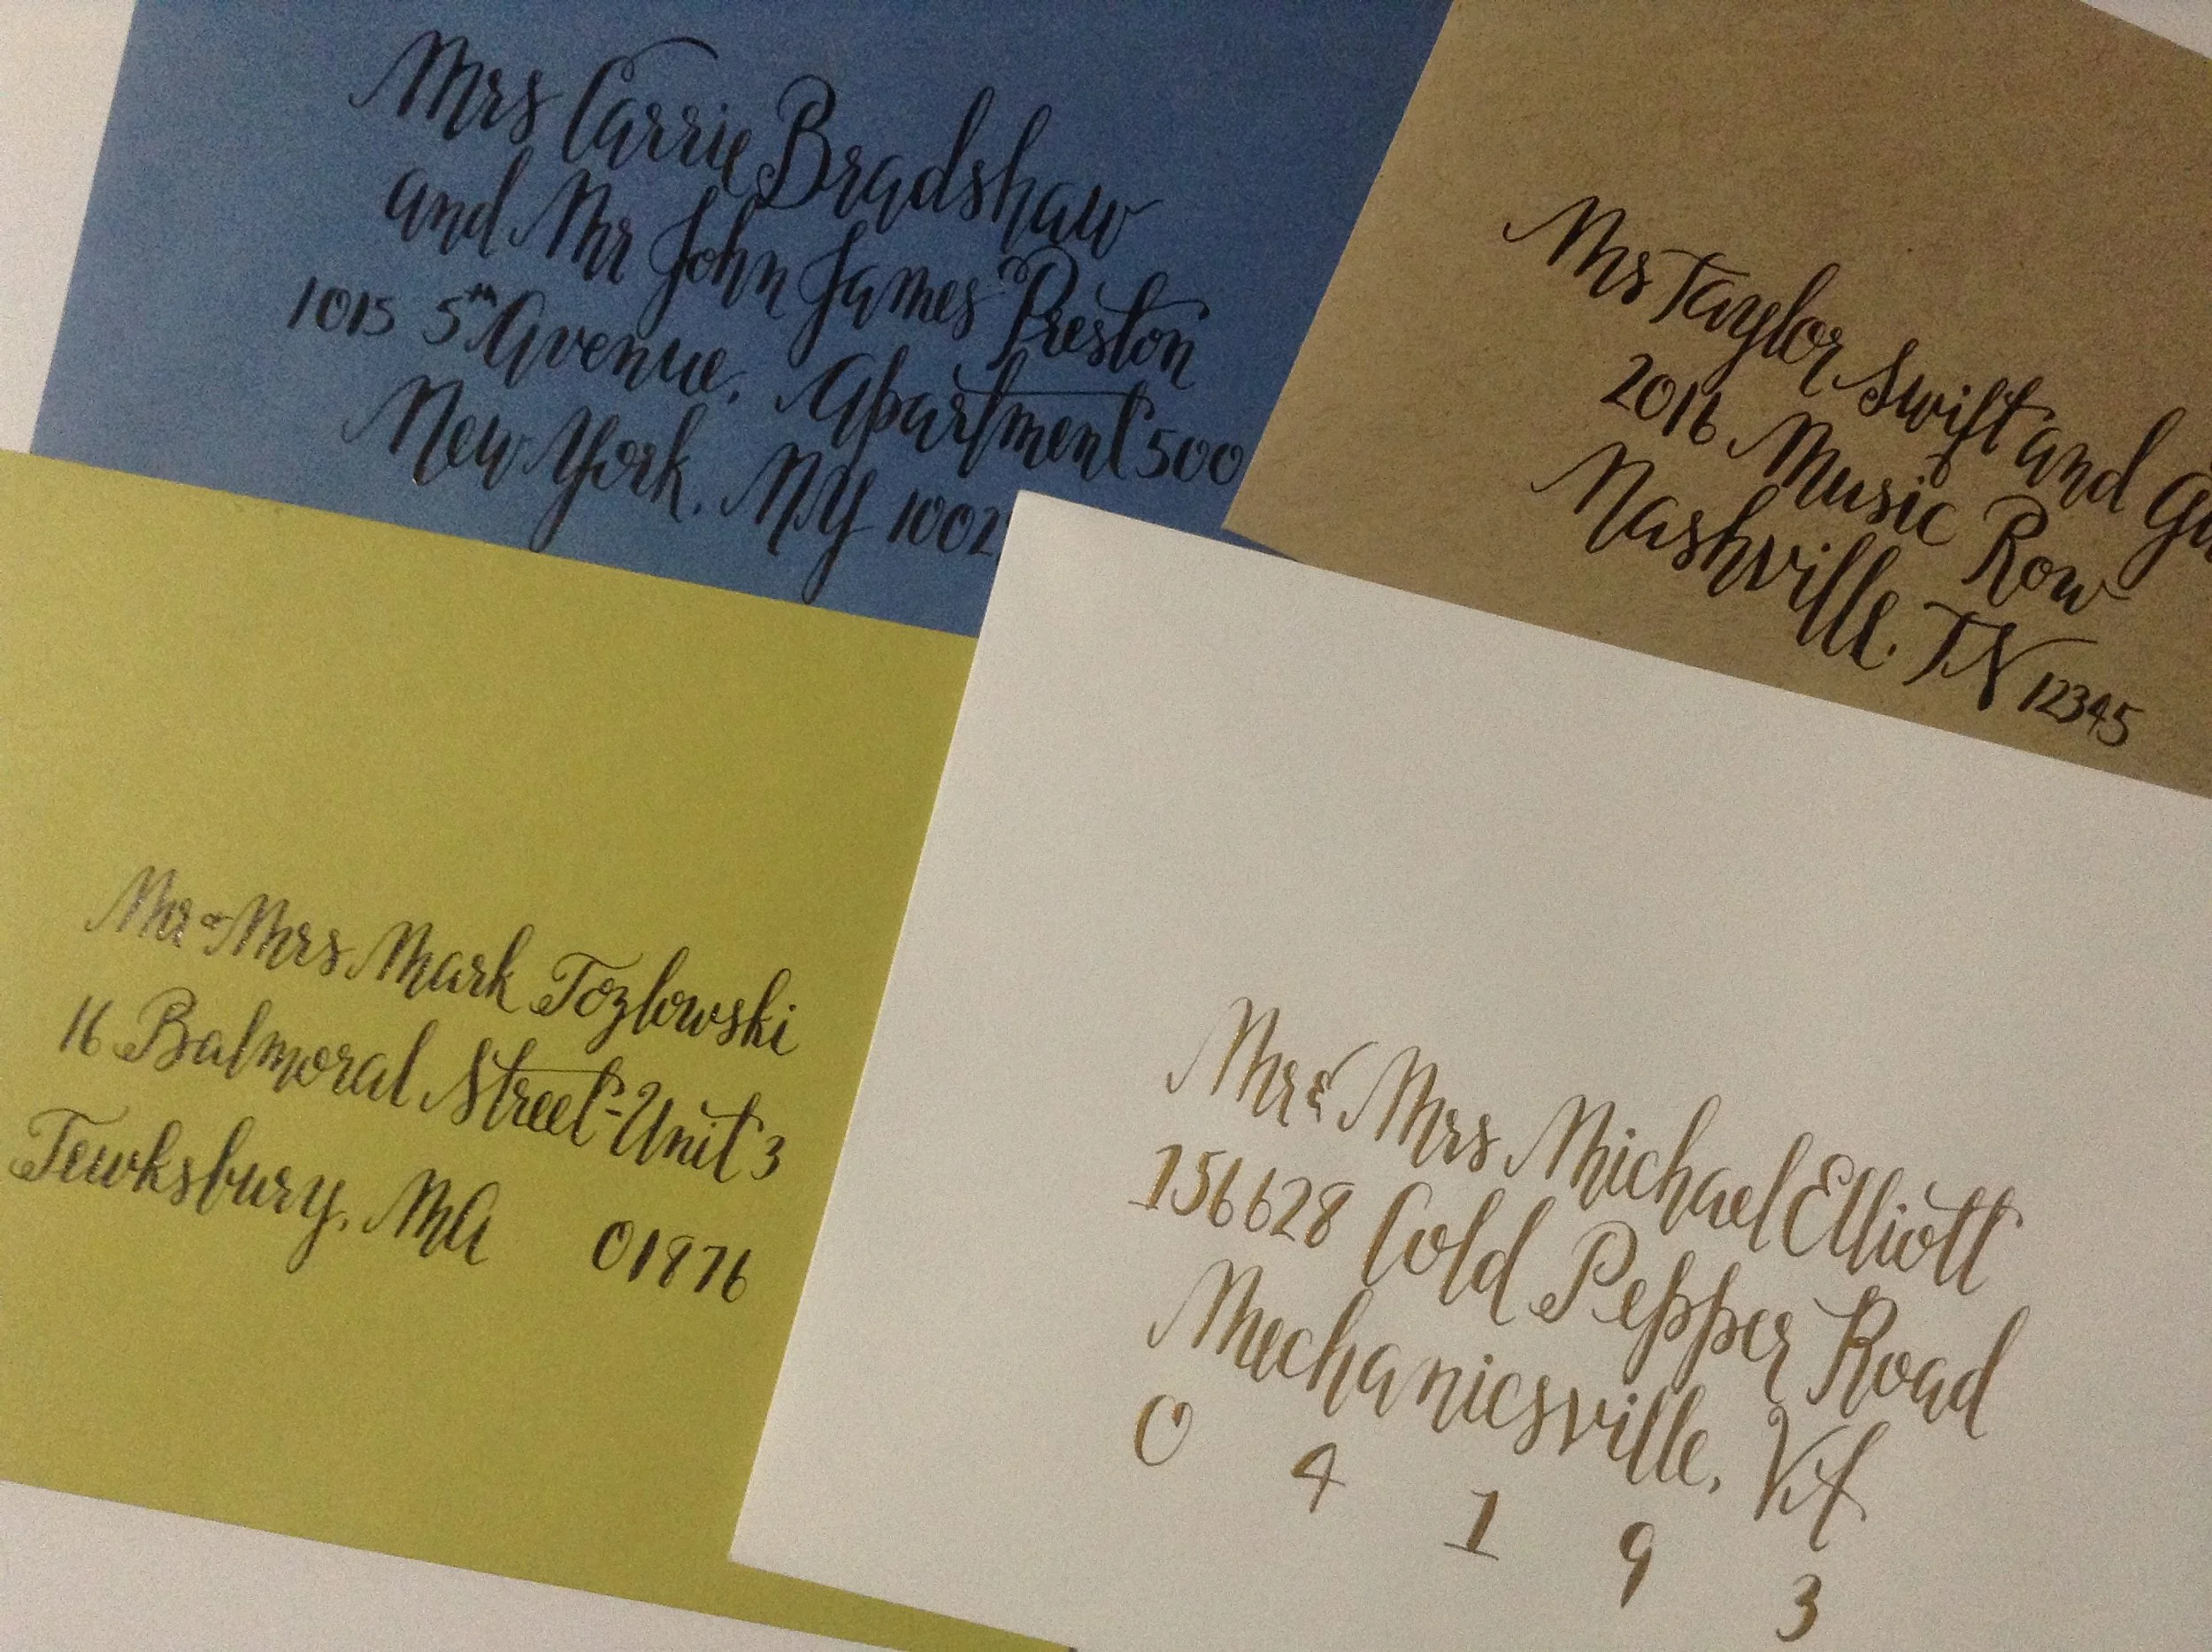 Mrs Carrie Bradshaw
and Mr John James Preston
1015 5th Avenue, Apartment 500
New York, NY 1002
Ms Taylor Swift and
2016 Music Row
Nashville, TN 12345
Mr & Mrs Mark Tozlowski
16 Balmoral Street-Unit 3
Tewksbury, MA 01876
Mr & Mrs Michael Elliott
156628 Cold Pepper Road
Mechanicsville, VA
0 4 1 9 3